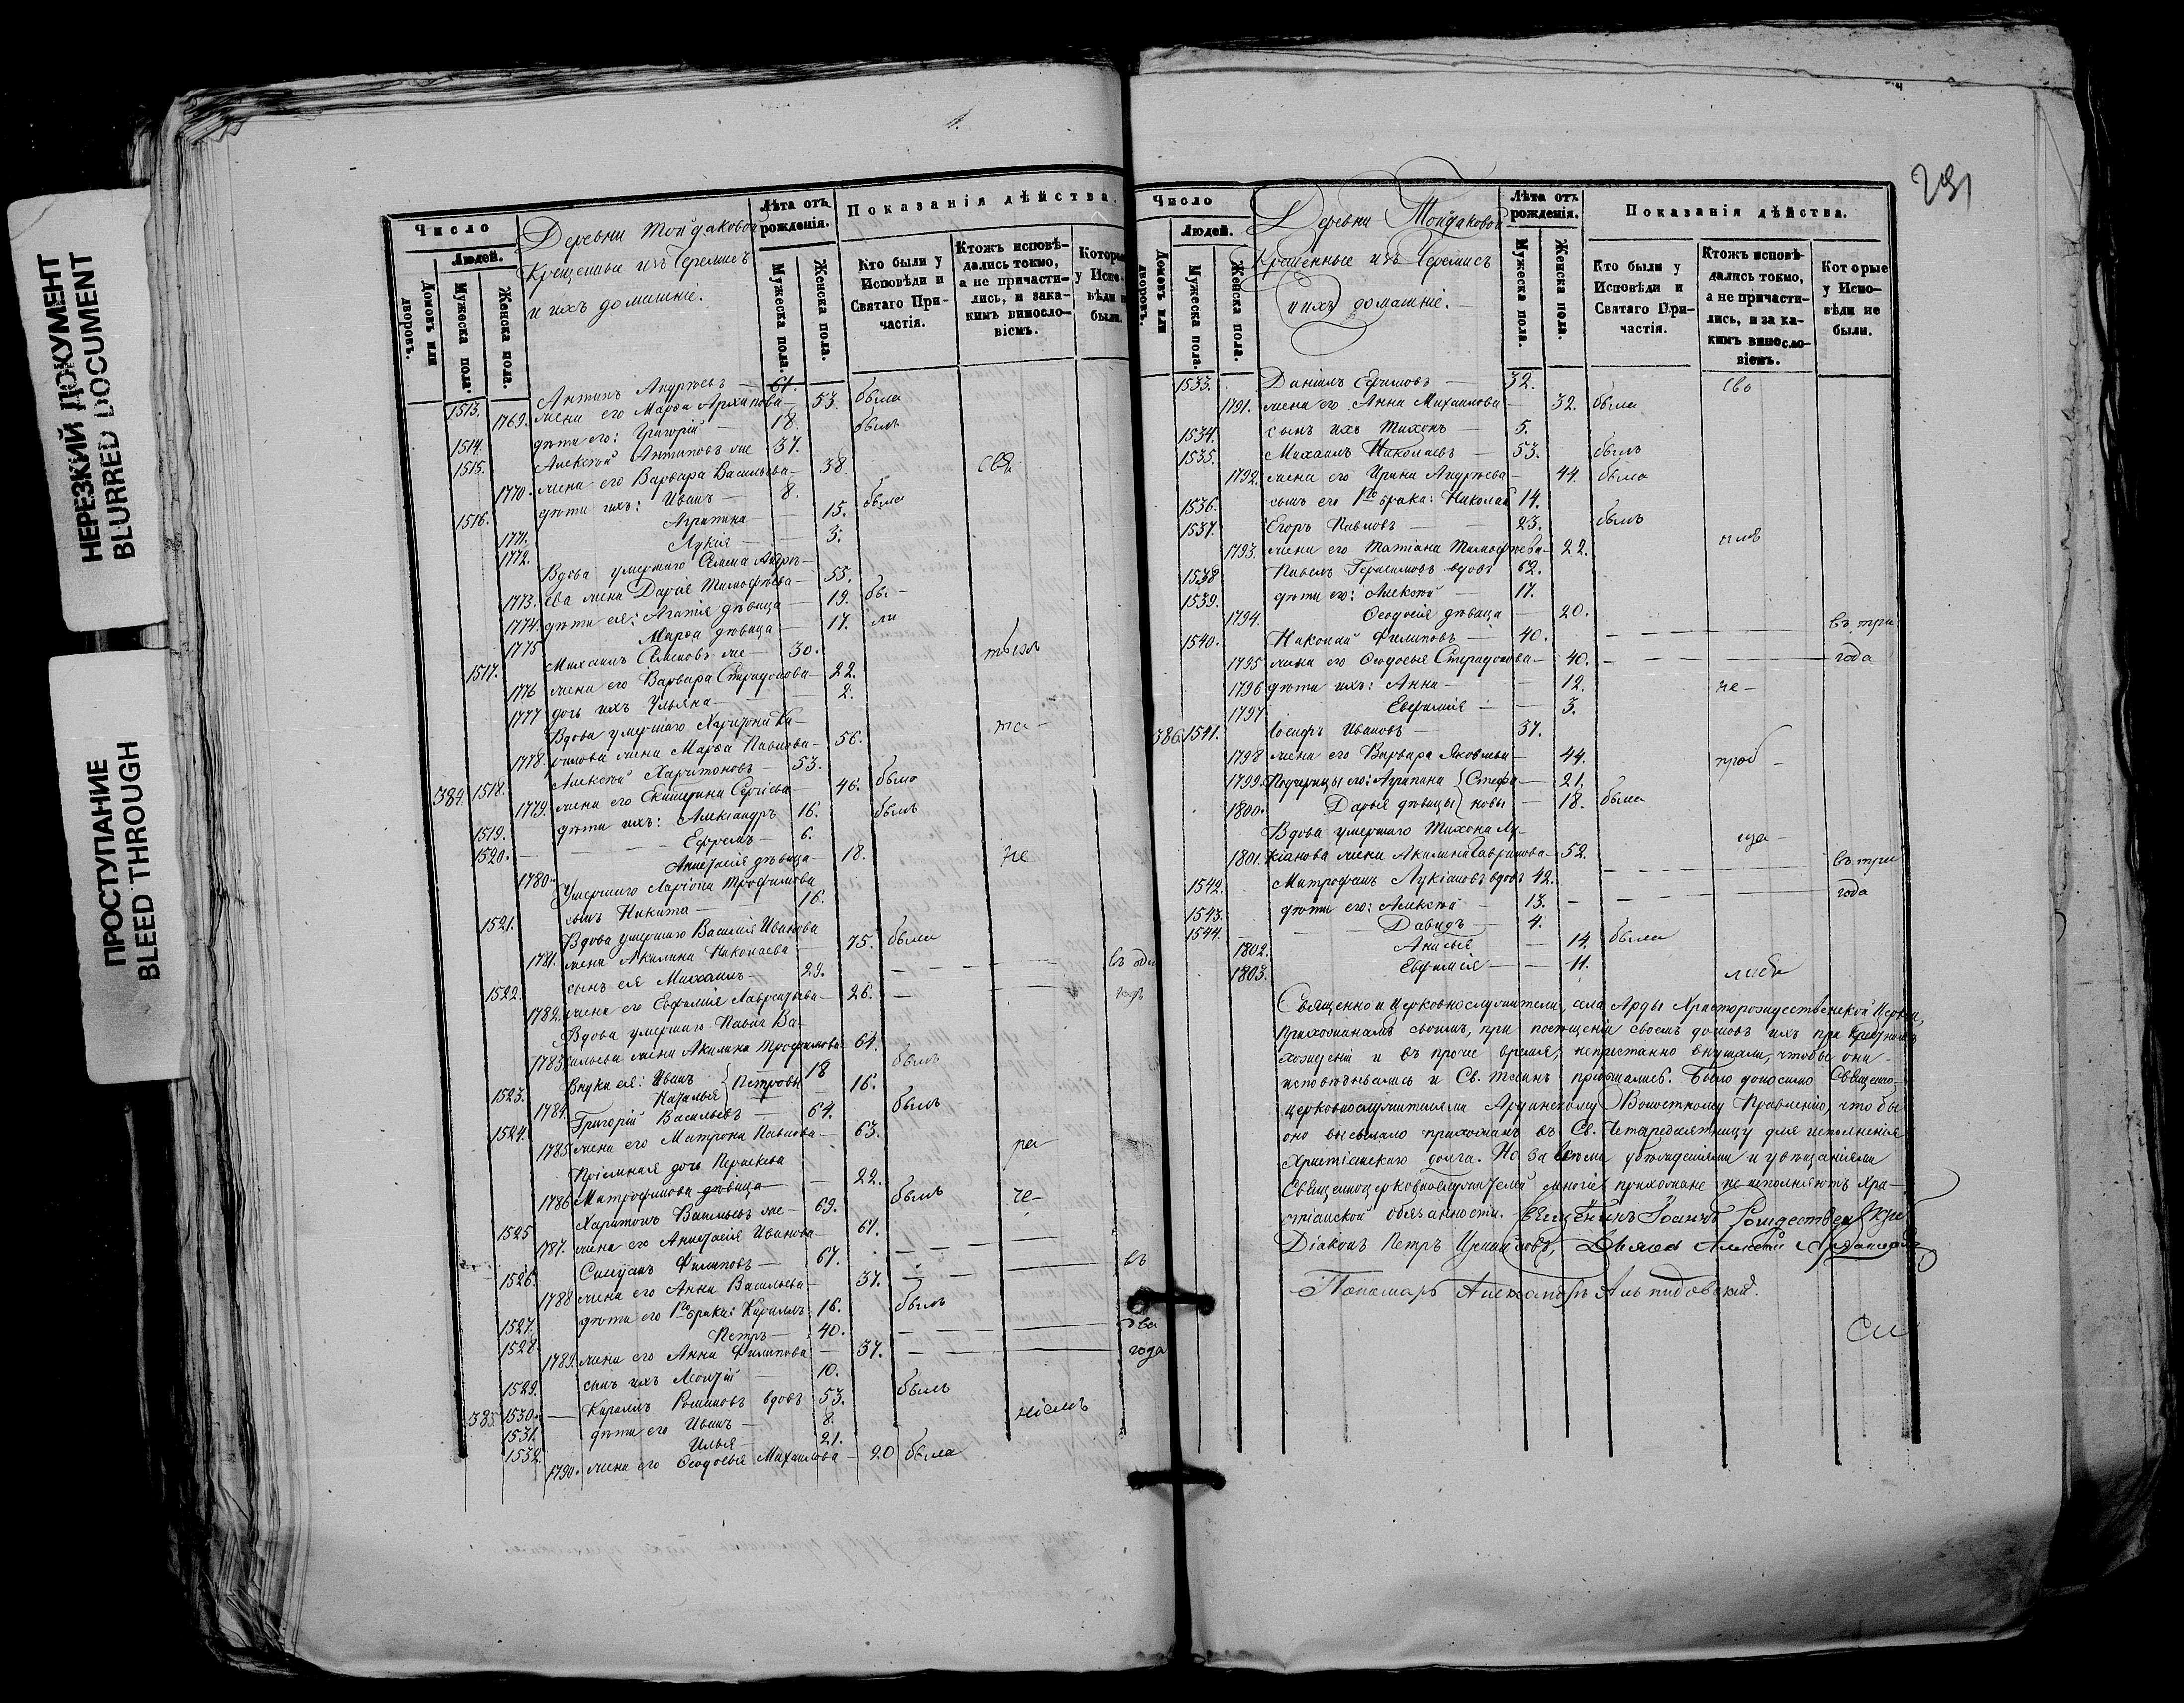 НЕРЕЗКИЙ ДОКУМЕНТ
BLURRED DOCUMENT
ПРОСТУПАНИЕ
BLEED THROUGH
Число
Людей.
Домовъ или дворовъ.
Мужеска пола.
Женска пола.
Деревни Тойдаковой
Крещенные изъ Черемисъ
и ихъ домашніе.
Лѣта отъ рожденія.
Мужеска пола.
Женска пола.
Показанія дѣйства.
Кто были у Исповѣди и Святаго Причастія.
Ктожъ исповѣдались токмо, а не причастились, и закакимъ винословіемъ.
Которые у Исповѣди не были.
1513. Антипъ Андреевъ — 61.
1769. жена его Марѳа Архипова — 53. была
1514. дѣти его: Григорій — 18. былъ
1515. Алексѣй Антиповъ же 37.
1770. жена его Варвара Васильева — 38. свя
1516. дѣти ихъ: Иванъ — 8.
1771. Агрипина — 15. была
1772. Лукія — 3.
Вдова умершаго Семена Андре-
1773. ева жена Дарія Тимофѣева — 55.
1774. дѣти ея: Агапія дѣвица — 19. бы-
1775 Марѳа дѣвица — 17. ли
1517. Михаилъ Семеновъ же — 30.
1776 жена его Варвара Спиридонова — 22.
1777 дочь ихъ Ульяна — 2.
Вдова умершаго Харитона Ки-
1778. рилова жена Марѳа Павлова — 56.
384. 1518. Алексѣй Харитоновъ — 53.
1779. жена его Екатерина Сергіева — 46. была
1519. дѣти ихъ: Александръ 16. былъ
1520. Ефремъ — 6.
1780. Анастасія дѣвица — 18. не
Умершаго Ларіона Трофимова
1521. сынъ Никита — 16.
Вдова умершаго Василія Иванова
1781. жена Акилина Николаева 75. была
1522. сынъ ея Михаилъ — 29. въ одинъ
1782. жена его Евфимія Лаврентьева — 26. годъ
Вдова умершаго Павла Ва-
1783. сильева жена Акилина Трофимова 64.
1523. Внуки ея: Иванъ Петровы 18 былъ
1784. Наталья 16.
1524. Григорій Васильевъ — 64. былъ
1785. жена его Матрона Павлова — 63.
Пріемная дочь Параскева
1786 Митрофанова дѣвица — 22.
1525 Харитонъ Васильевъ же — 69. былъ че-
1787. жена его Анастасія Иванова 67.
1526. Силуанъ Филиповъ — 67. въ
1788 жена его Анна Васильева — 37.
1527. дѣти его 1го брака: Кирилъ 16. былъ
1528. Петръ — 40. два
1789. жена его Анна Филипова — 37. года
1529. сынъ ихъ Моисей — 10.
385. 1530. Кирилъ Романовъ вдовъ 53. былъ
1531. дѣти его Иванъ — 8. ніемъ
1532. Илья — 21.
1790. жена его Ѳеодосья Михаилова — 20 была
231
Число
Людей.
Домовъ или дворовъ.
Мужеска пола.
Женска пола.
Деревни Тойдаковой
Крещенные изъ Черемисъ
и ихъ домашніе.
Лѣта отъ рожденія.
Мужеска пола.
Женска пола.
Показанія дѣйства.
Кто были у Исповѣди и Святаго Причастія.
Ктожъ исповѣдались токмо, а не причастились, и за какимъ винословіемъ.
Которые у Исповѣди не были.
1533. Даніилъ Ефимовъ — 32. сво
1791. жена его Анна Михаилова — 32. была
1534. сынъ ихъ Тихонъ — 5.
1535. Михаилъ Николаевъ — 53. былъ
1792. жена его Ирина Андреева — 44. была
1536. сынъ его 1го брака: Николай 14.
1537. Егоръ Павловъ — 23. былъ
1793. жена его Татіана Тимофѣева — 22.
1538 Павелъ Герасимовъ вдовъ 62.
1539. дѣти его: Алексѣй — 17.
1794. Ѳеодосія дѣвица — 20.
1540. Николай Филиповъ — 40. въ три
1795 жена его Ѳеодосья Спиридонова — 40. года
1796 дѣти ихъ: Анна — 12. не-
1797 Евфимія — 3.
386. 1541. Іосифъ Ивановъ — 37.
1798 жена его Варвара Яковлева — 44.
1799. Падчерицы его: Агрипина Стефа- — 21.
1800. Дарья дѣвицы новы — 18. была
Вдова умершаго Тихона Лу-
1801. кіанова жена Акилина Гаврилова — 52.
1542. Митрофанъ Лукіановъ вдовъ 42. въ три
1543. дѣти его: Алексѣй — 13. года
1544. Давидъ — 4.
1802. Анисья — 14. была
1803. Евфимія — 11.
Священно и Церковнослужители села Арды Христорождественской Церкви,
прихожанамъ своимъ, при посѣщеніи своемъ домовъ ихъ при крестномъ
хожденіи и въ прочее время, непрестанно внушали, чтобы они
исповѣдывались и Св. Таинъ пріобщались. Было доносимо Священно-
церковнослужителями Ардинскому Волостному Правленію, что бы
оно высылало прихожанъ въ Св. Четыредесятницу для исполненія
Христіанскаго долга. Но за всѣми убѣжденіями и увѣщаніями
Священноцерковнослужителей многіе прихожане не исполняютъ Хри-
стіанской обязанности. Священникъ Іоаннъ Рождественскій
Діаконъ Петръ Дьячокъ Алексѣй
Пономарь Александръ